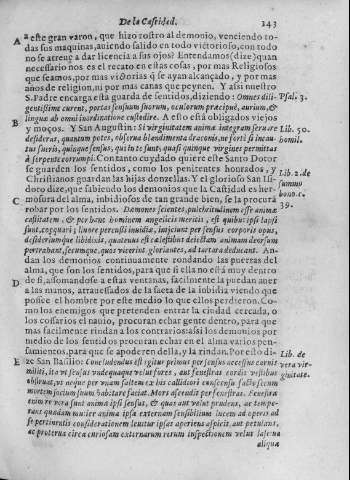 De la Castidad. 243
A a este gran varon, que hizo rostro al demonio, venciendo to-
das sus maquinas, auiendo salido en todo victorioso, con todo
no se atreue a dar licencia a sus ojos? Entendamos (dize) quan
necessario nos es el recato en estas cosas, por mas Religiosos
que seamos, por mas victorias q̃ se ayan alcançado, y por mas
años de religion, ni por mas canas que peynen. Y assi nuestro
S. Padre encarga esta guarda de sentidos, diziendo: Omnes dili- Psal. 3.
gentissime curent, portas sensuum suorum, oculorum præcipuè, aurium, &
linguæ ab omni inordinatione custodire. A esto està obligados viejos
B y moços. Y San Augustin: Si virginitatem animæ integram seruare Lib. 50.
desideras, quantum potes, obserua blandimenta draconis, ne forti si incau- homil.
tus fueris, quinque sensus, qui in te sunt, quasi quinque virgines permittas
à serpente corrumpi. Con tanto cuydado quiere este Santo Dotor
se guarden los sentidos, como los penitentes honrados, y
Christianos guardan las hijas donzellas. Y el glorioso San Isi- Lib. 2. de
doro dize, que sabiendo los demonios que la Castidad es her- summo
C mosura del alma, inbidiosos de tan grande bien, se la procurã bono. c.
robar por los sentidos. Dæmones scientes, pulchritudinem esse animæ 39.
castitatem, & per hanc hominem angelicis meritis, est quibus ipsi lapsi
sunt, coæquari; liuore perculsi inuidiæ, iniiciunt per sensus corporis opus,
desideriumque libidinis, quatenus est cælestibus deiectam animam deorsum
pertrahant, secumque, quos vicerint gloriantes, ad tartara deducant. An-
dan los demonios continuamente rondando las puertas del
alma, que son los sentidos, para que si ella no està muy dentro
D de si, assomandose a estas ventanas, facilmente la puedan auer
a las manos, atrauessados de la saeta de la inbidia viendo que
possee el hombre por este medio lo que ellos perdieron. Co-
mo los enemigos que pretenden entrar la ciudad cercada, o
los cossarios el nauio, procuran echar gente dentro, para que
mas facilmente rindan a los contrarios: assi los demonios por
medio de los sentidos procuran echar en el alma varios pen-
samientos, para que se apoderen della, y la rindan. Por esto di- Lib. de
E ze San Basilio: Concludentus est igitur primus per sensus accessus carnis vera vir-
militi, ita vt sensus vndequaque velut fores, aut fenestras cordis vestibus ginitate.
obseruat, vt neque per vnam saltem ex his callidori consensu facto secum
mortem socium suum habitare faciat. Mors ascendit per fenestras. Fenestra
enim re vera sunt animæ ipsi sensus, & quas aut velut prudens, ac tempe-
rans quadam mulier anima ipsa externam sensibilium lucem ad operis ad
se pertinentis considerationem leuiter ipsas aperiens aspicit, aut petulans,
ac proterua circa curiosam externarum rerum inspectionem velut lasciua
aliqua